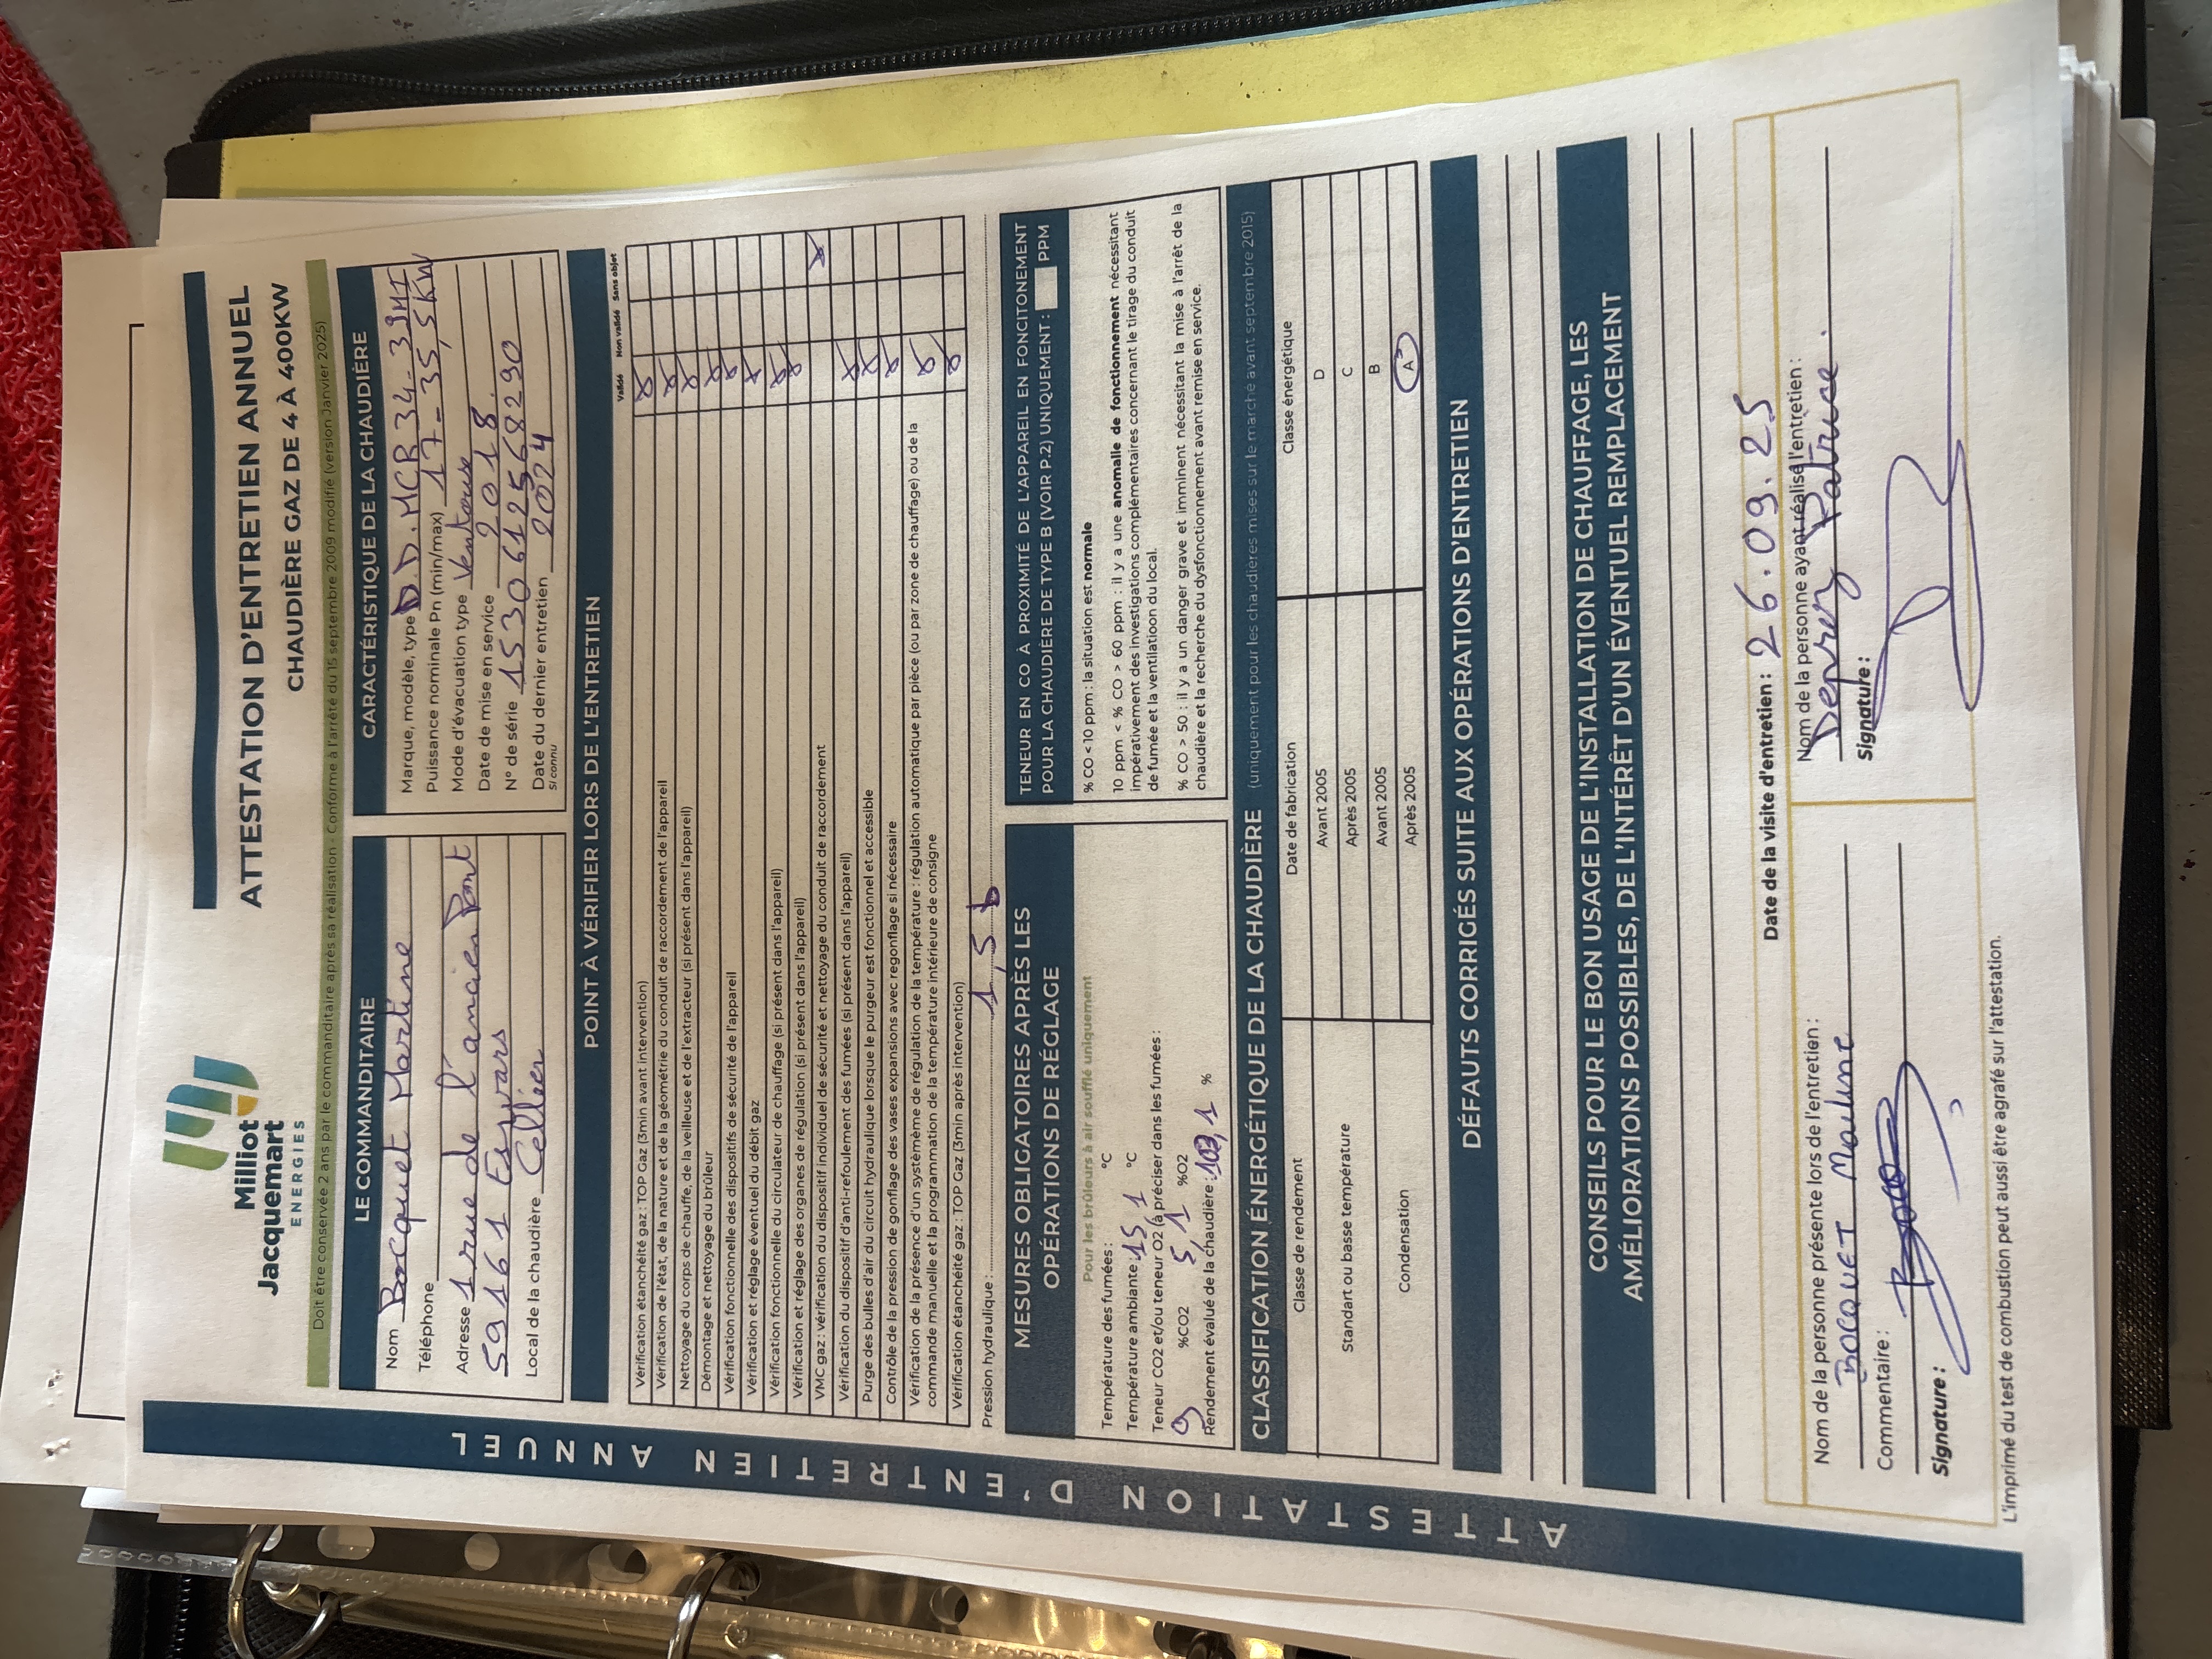 Milliot
Jacquemart
ENERGIES
ATTESTATION D'ENTRETIEN ANNUEL
CHAUDIÈRE GAZ DE 4 À 400KW
Doit être conservée 2 ans par le commanditaire après sa réalisation - Conforme à l'arrêté du 15 septembre 2009 modifié (version Janvier 2025)
LE COMMANDITAIRE
Nom Bocquet Martine
Téléphone
Adresse 1 rue de l'ancien Pont
59161 Eswars
Local de la chaudière Cellier
CARACTÉRISTIQUE DE LA CHAUDIÈRE
Marque, modèle, type D.D. MCR 34-39MI
Puissance nominale Pn (min/max) 17-35,5 KW
Mode d'évacuation type Ventouse
Date de mise en service 2018.
N° de série 1530612568290
Date du dernier entretien 2024
si connu
POINT À VÉRIFIER LORS DE L'ENTRETIEN
Validé Non validé Sans objet
Vérification étanchéité gaz : TOP Gaz (3min avant intervention) X
Vérification de l'état, de la nature et de la géométrie du conduit de raccordement de l'appareil X
Nettoyage du corps de chauffe, de la veilleuse et de l'extracteur (si présent dans l'appareil) X
Démontage et nettoyage du brûleur X
Vérification fonctionnelle des dispositifs de sécurité de l'appareil X
Vérification et réglage éventuel du débit gaz X
Vérification fonctionnelle du circulateur de chauffage (si présent dans l'appareil) X
Vérification et réglage des organes de régulation (si présent dans l'appareil) X
VMC gaz : vérification du dispositif individuel de sécurité et nettoyage du conduit de raccordement X
Vérification du dispositif d'anti-refoulement des fumées (si présent dans l'appareil) X
Purge des bulles d'air du circuit hydraulique lorsque le purgeur est fonctionnel et accessible X
Contrôle de la pression de gonflage des vases expansions avec regonflage si nécessaire X
Vérification de la présence d'un système de régulation de la température : régulation automatique par pièce (ou par zone de chauffage) ou de la
commande manuelle et la programmation de la température intérieure de consigne X
Vérification étanchéité gaz : TOP Gaz (3min après intervention) X
Pression hydraulique : 1,5 b
MESURES OBLIGATOIRES APRÈS LES
OPÉRATIONS DE RÉGLAGE
Pour les brûleurs à air soufflé uniquement
Température des fumées : °C
Température ambiante : 15,1 °C
Teneur CO2 et/ou teneur O2 (à préciser dans les fumées :
9 %CO2 5,1 %O2
Rendement évalué de la chaudière : ,1 %
TENEUR EN CO À PROXIMITÉ DE L'APPAREIL EN FONCITONEMENT
POUR LA CHAUDIÈRE DE TYPE B (VOIR P.2) UNIQUEMENT : PPM
% CO < 10 ppm : la situation est normale
10 ppm < % CO > 60 ppm : il y a une anomalie de fonctionnement nécesitant
impérativement des investigations complémentaires concernant le tirage du conduit
de fumée et la ventilatioon du local.
% CO > 50 : il y a un danger grave et imminent nécesitant la mise à l'arrêt de la
chaudière et la recherche du dysfonctionnement avant remise en service.
CLASSIFICATION ÉNERGÉTIQUE DE LA CHAUDIÈRE (uniquement pour les chaudières mises sur le marché avant septembre 2015)
Classe de rendement Date de fabrication Classe énergétique
Standart ou basse température Avant 2005 D
Après 2005 C
Condensation Avant 2005 B
Après 2005 A
DÉFAUTS CORRIGÉS SUITE AUX OPÉRATIONS D'ENTRETIEN
CONSEILS POUR LE BON USAGE DE L'INSTALLATION DE CHAUFFAGE, LES
AMÉLIORATIONS POSSIBLES, DE L'INTÉRÊT D'UN ÉVENTUEL REMPLACEMENT
Date de la visite d'entretien : 26.09.25
Nom de la personne présente lors de l'entretien :
BOCQUET Martine
Commentaire :
Signature :
Nom de la personne ayant réalisé l'entretien :
Deprez Patrice.
Signature :
L'imprimé du test de combustion peut aussi être agrafé sur l'attestation.
ATTESTATION D'ENTRETIEN ANNUEL